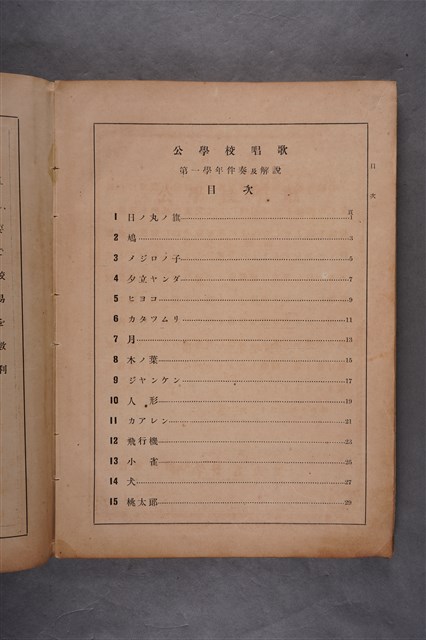 公學校唱歌
第一學年伴奏及解說
目次
頁
1 日ノ丸ノ旗 1
2 鳩 3
3 メジロノ子 5
4 夕立ヤンダ 7
5 ヒヨコ 9
6 カタツムリ 11
7 月 13
8 木ノ葉 15
9 ジヤンケン 17
10 人形 19
11 カアレン 21
12 飛行機 23
13 小雀 25
14 犬 27
15 桃太郎 29
目次